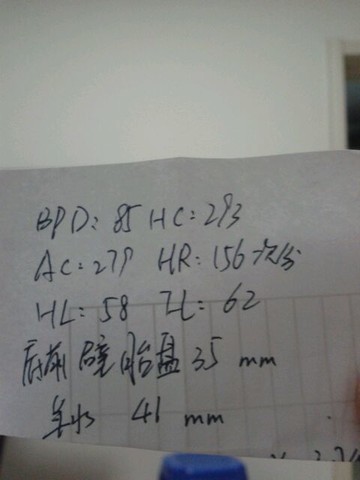 BPD: 85 HC: 293
AC: 279 HR: 156次/分
HL: 58 FL: 62
后前壁胎盘 35 mm
羊水 41 mm